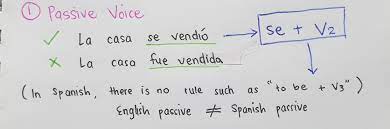 ① Passive Voice
✓ La casa se vendió → se + V2
✗ La casa fue vendida
(In Spanish, there is no rule such as "to be + V3")
English passive ≠ Spanish passive